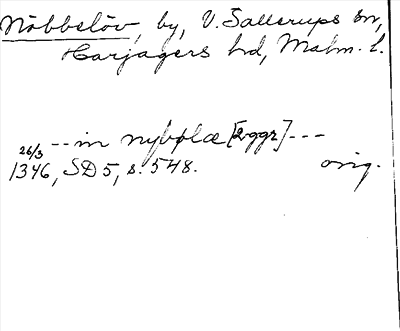 Nöbbelöv, by, V. Sallerups sn,
Harjagers hd, Malm. l.
-- in nybölæ [2 ggr] ---
26/3 1346, SD 5, s. 548. orig.